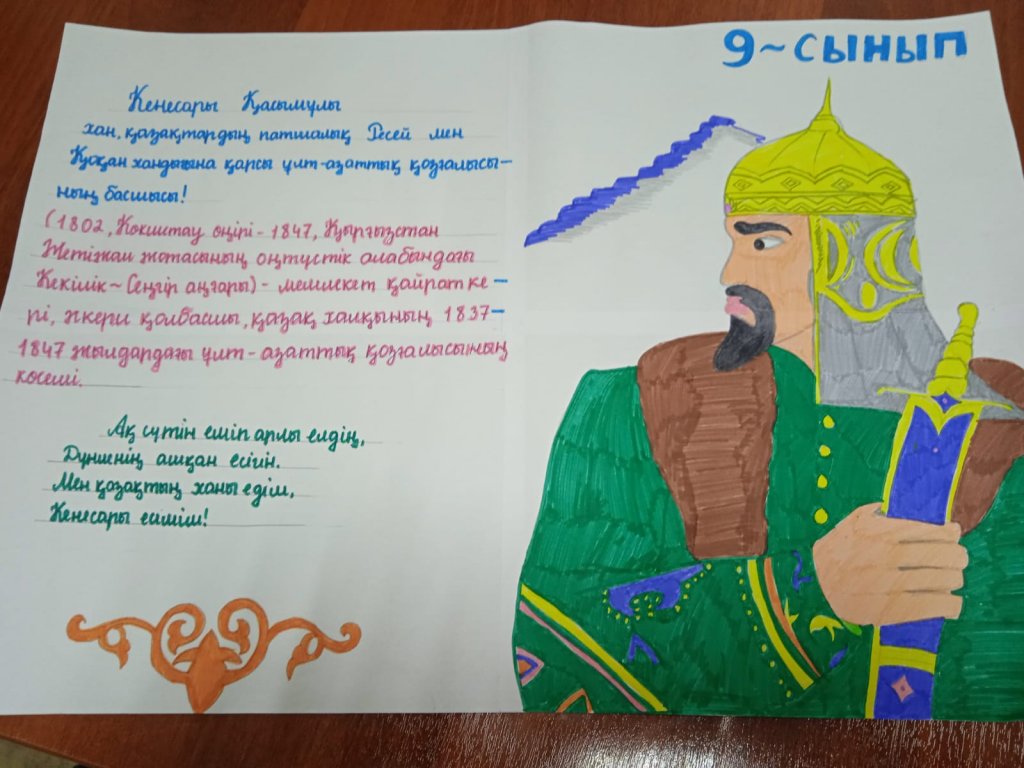 9~сынып
Кенесары Қасымұлы
хан, қазақтардың патшалық Ресей мен
Қоқан хандығына қарсы ұлт-азаттық қозғалысы-
ның басшысы!
(1802, Көкшетау өңірі - 1847, Қырғызстан
Жетіжал жотасының оңтүстік алабындағы
Кекілік~Сеңгір аңғары) - мемлекет қайратке-
рі, әскери қолбасшы, қазақ халқының 1837-
1847 жылдардағы ұлт-азаттық қозғалысының
көсемі.
Ақ сүтін еміп арлы елдің,
Дүниенің ашқан есігін.
Мен қазақтың ханы едім,
Кенесары есімім!